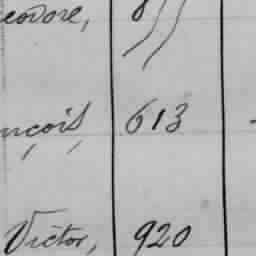 eodore,
nçois, 613
Victor, 920